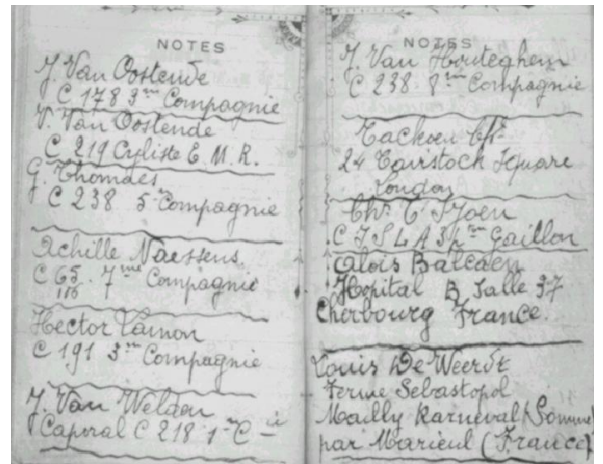 NOTES
J. Van Oostende
C 178 3me Compagnie
V. Van Oostende
C 219 Cycliste E. M. R.
G. Thomaes
C 238 5e Compagnie
Achille Naessens
C 65 7me Compagnie
116
Hector
C 191 3me Compagnie
J. Van Welden
Caporal C 218 1re Cie
NOTES
J. Van Houteghem
C 238 8me Compagnie
24 Tavistock Square
London
Gaillon
Aloïs Balcaen
Hopital B Salle 37
Cherbourg France.
Louis De Weerdt
Ferme Sebastopol
Mailly Raneval (Somme)
par Morieul (France)